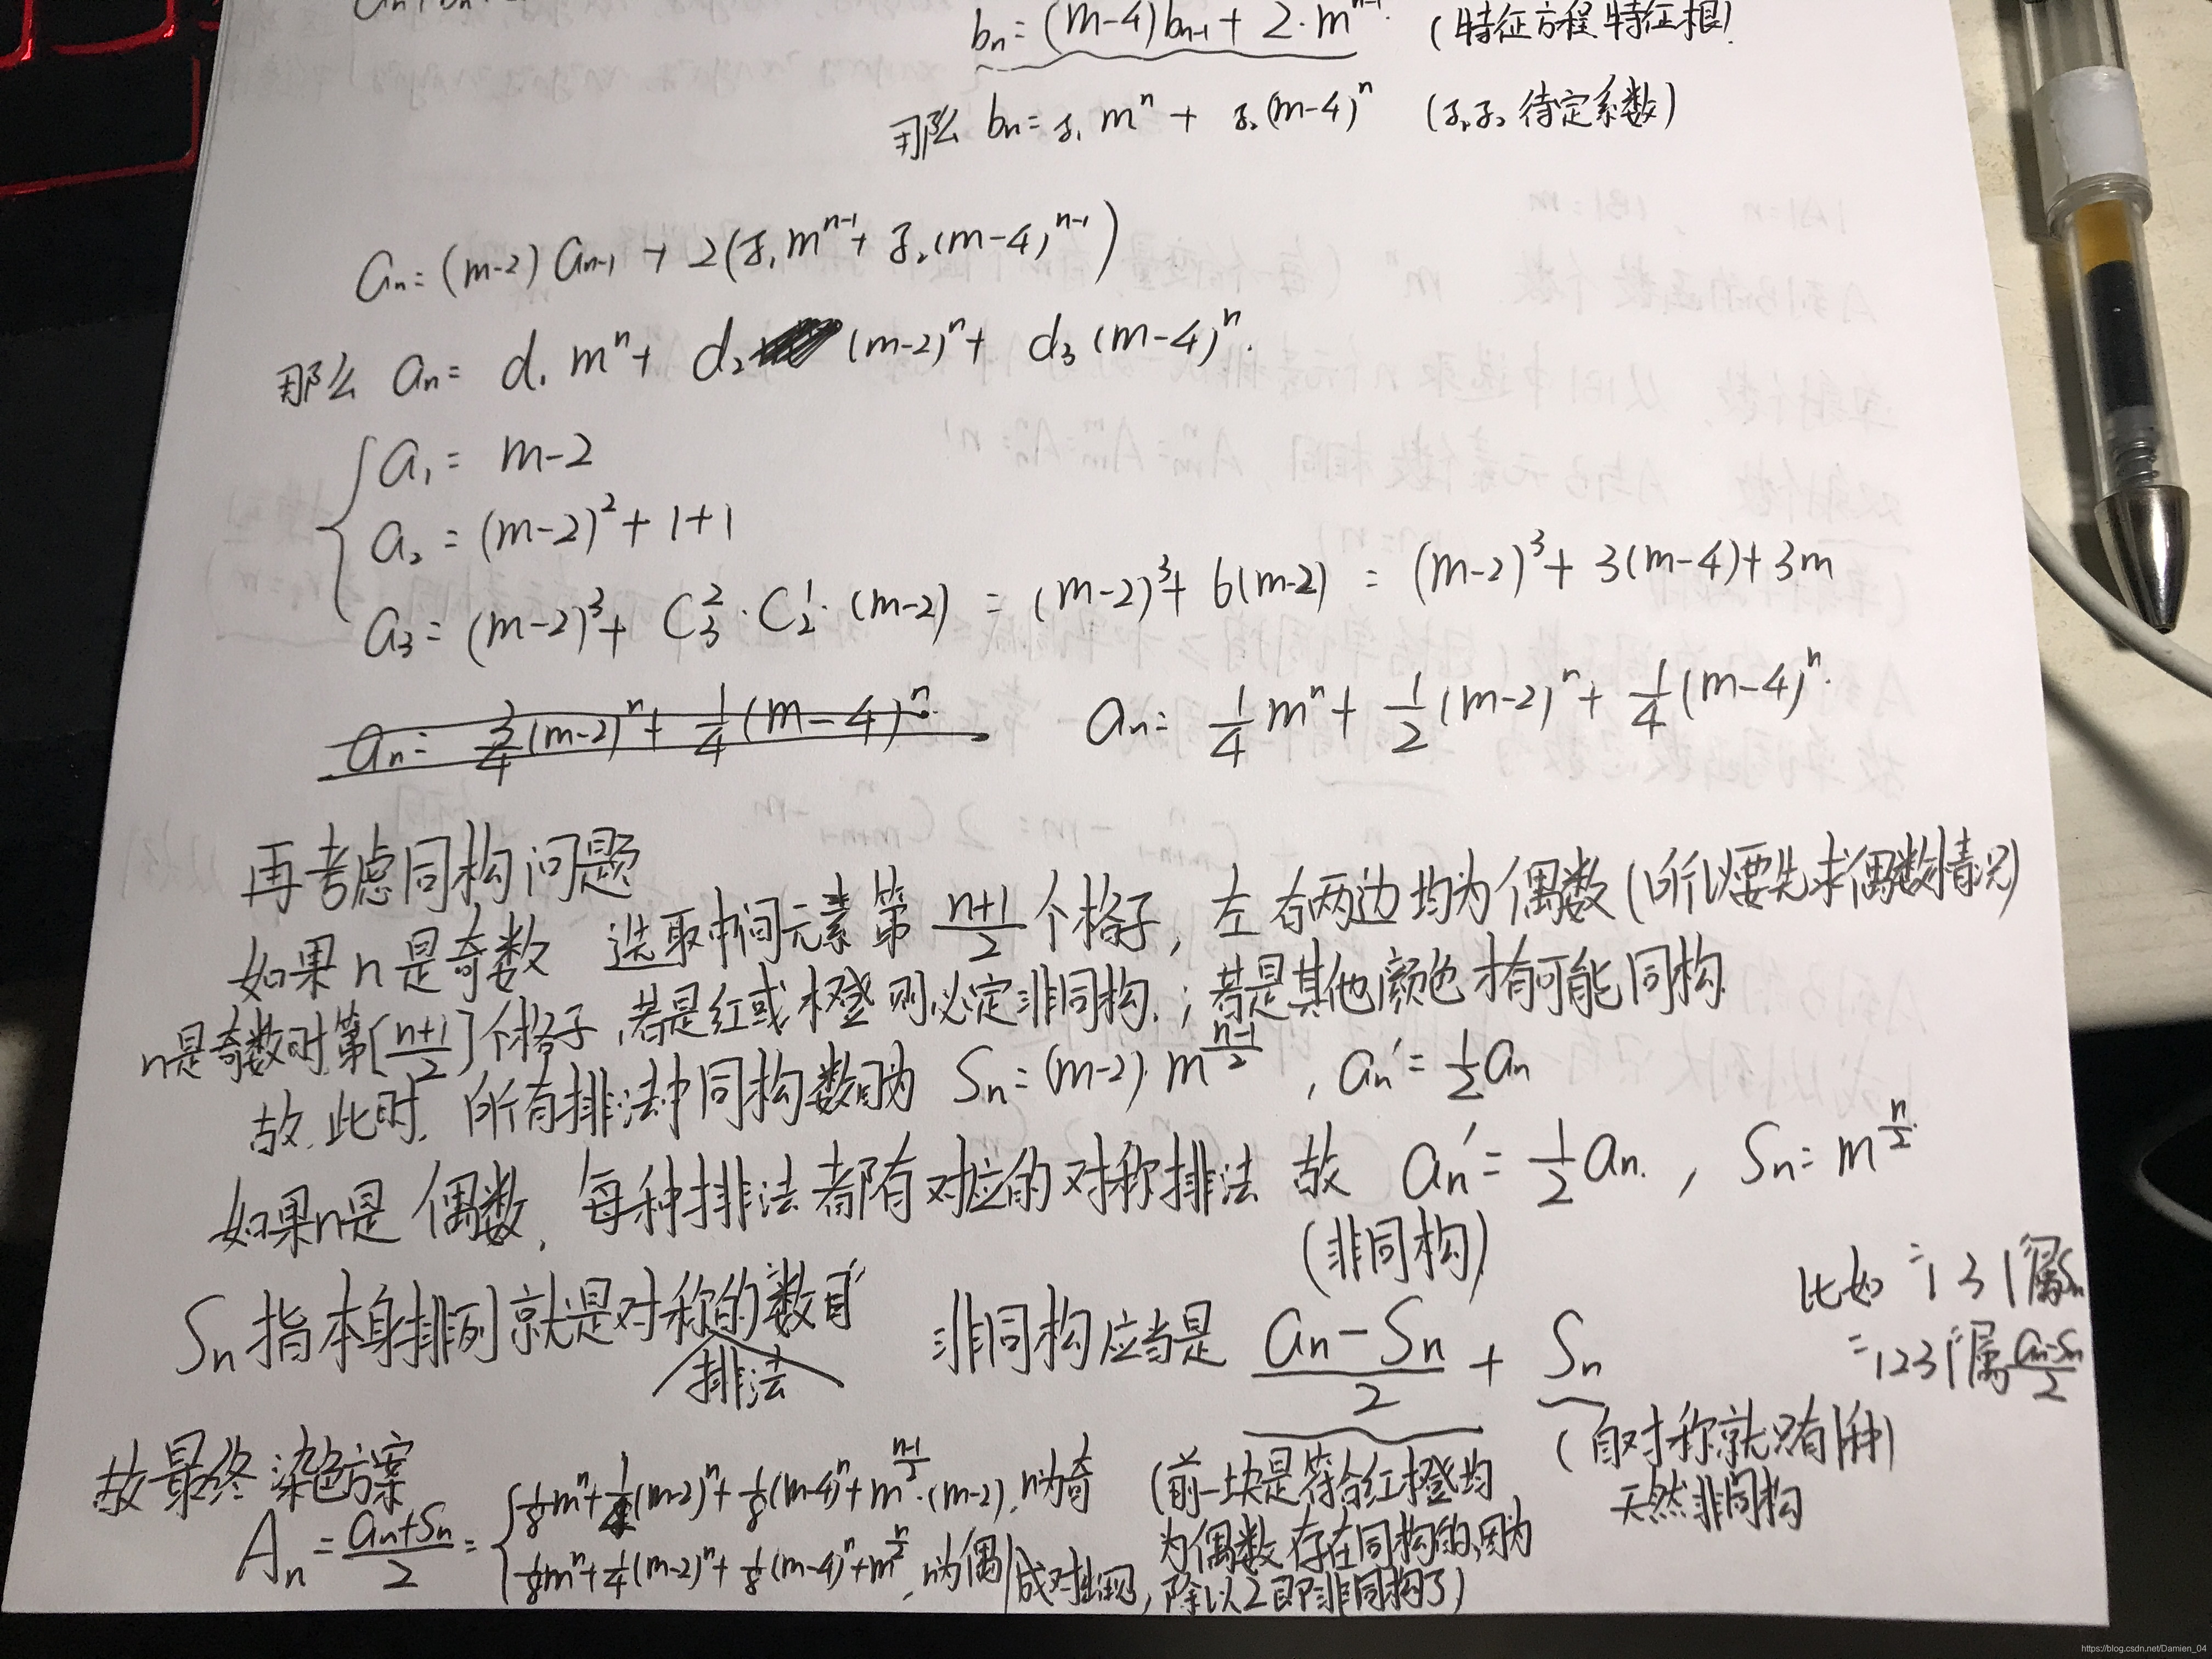 bₙ = (m-4)bₙ₋₁ + 2·mⁿ⁻¹ (特征方程 特征根)
那么 bₙ = z₁ mⁿ + z₂ (m-4)ⁿ (z₁z₂ 待定系数)
aₙ = (m-2)aₙ₋₁ + 2(z₁mⁿ⁻¹ + z₂(m-4)ⁿ⁻¹)
那么 aₙ = d₁ mⁿ + d₂ (m-2)ⁿ + d₃ (m-4)ⁿ.
a₁ = m-2
a₂ = (m-2)² + 1+1
a₃ = (m-2)³ + C₃²·C₂¹·(m-2) = (m-2)³ + 6(m-2) = (m-2)³ + 3(m-4) + 3m
aₙ = 3/4(m-2)ⁿ + 1/4(m-4)ⁿ. aₙ = 1/4mⁿ + 1/2(m-2)ⁿ + 1/4(m-4)ⁿ.
再考虑同构问题
如果n是奇数 选取中间元素第 (n+1)/2 个格子, 左右两边均为偶数(所以要先求偶数情况)
n是奇数时第[(n+1)/2]个格子, 若是红或橙则必定非同构.; 若是其他颜色才有可能同构.
故.此时. 所有排法中同构数目为 Sₙ = (m-2)·m^((n-1)/2), aₙ' = 1/2aₙ
如果n是偶数, 每种排法都有对应的对称排法 故 aₙ' = 1/2aₙ., Sₙ = m^(n/2).
(非同构)
Sₙ指本身排列就是对称的数目 非同构应当是 (aₙ-Sₙ)/2 + Sₙ
排法
比如 "131"属Sₙ
"123"属(aₙ-Sₙ)/2
(自对称就只有1种)
天然非同构
故最终染色方案
Aₙ = (aₙ+Sₙ)/2 = { 1/8mⁿ + 1/4(m-2)ⁿ + 1/8(m-4)ⁿ + m^((n-1)/2)·(m-2), n为奇
1/8mⁿ + 1/4(m-2)ⁿ + 1/8(m-4)ⁿ + m^(n/2), n为偶
(前一块是符合红橙均
为偶数存在同构的,因为
成对出现, 除以2即非同构了)
https://blog.csdn.net/Damien_04